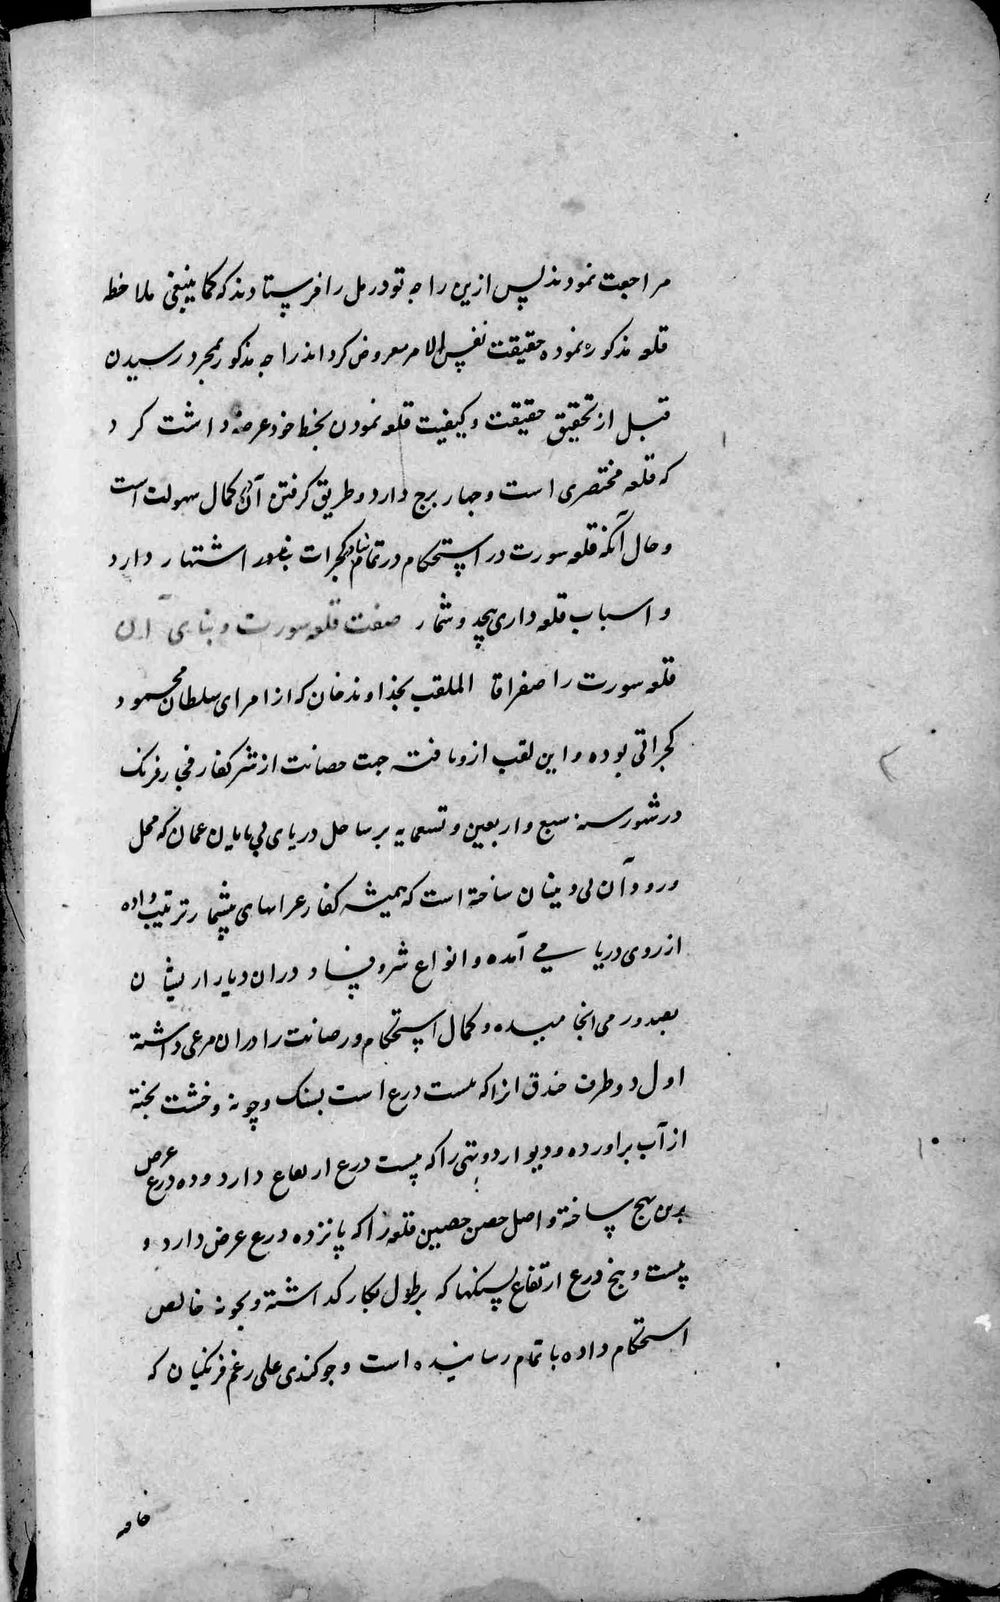 مراجعت نمودند پس ازین راجه تودرمل را فرستادند که کماینبغی ملاحظه
قلعه مذکوره نموده حقیقت نفس الامر معروض کرداند راجه مذکور بمجرد رسیدن
قبل از تحقیق حقیقت و کیفیت قلعه نمودن بخط خود عرضه داشت کرد
که قلعه مختصری است و چهار برج دارد و طریق کرفتن آن بکمال سهولت است
و حال آنکه قلعه سورت در استحکام در تمام بلاد کجرات بغور اشتهار دارد
و اسباب قلعه داری بیحد و شمار صفت قلعه سورت و بنای آن
قلعه سورت را صفراقا الملقب بخداوند خان که از امرای سلطان محمود
کجراتی بوده و این لقب ازو یافته جهت حصانت از شر کفار فجار فرنک
در شهور سنه سبع و اربعین و تسعمایه بر ساحل دریای بی پایان عمان که محل
ورود آن بی دینان ساخته است که همیشه کفار عرابهای بیشمار ترتیب داده
از روی دریا می آمده و انواع شر و فساد دران دیار ازیشان
بصدور می انجامیده و کمال استحکام و رصانت را دران مرعی داشته
اول دو طرف خندق انرا که بست درع است بسنک و چونه و خشت پخته
از آب براورده و دیوار دو بتی را که بیست درع ارتفاع دارد و ده درع عرض
برین نهج ساخته و اصل حصن حصین قلعه را که پانزده درع عرض دارد و
بیست و پنج درع ارتفاع بسنکها که بر طول بکار کداشته و بچونه خالص
استحکام داده باتمام رسانیده است و چوکندی علی رغم فرنکیان که
خاصه
۲
۱۰